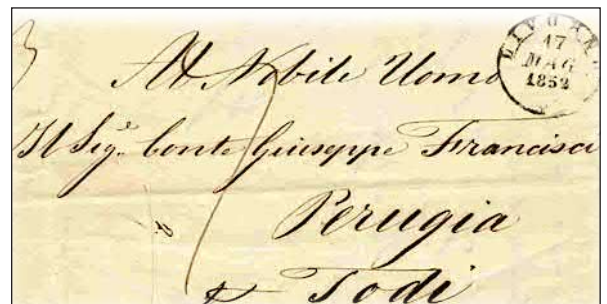 LIVORNO
17
MAG
1852
Al Nobile Uomo
Il Sigr. Conte Giuseppe Francisci
Perugia
Todi